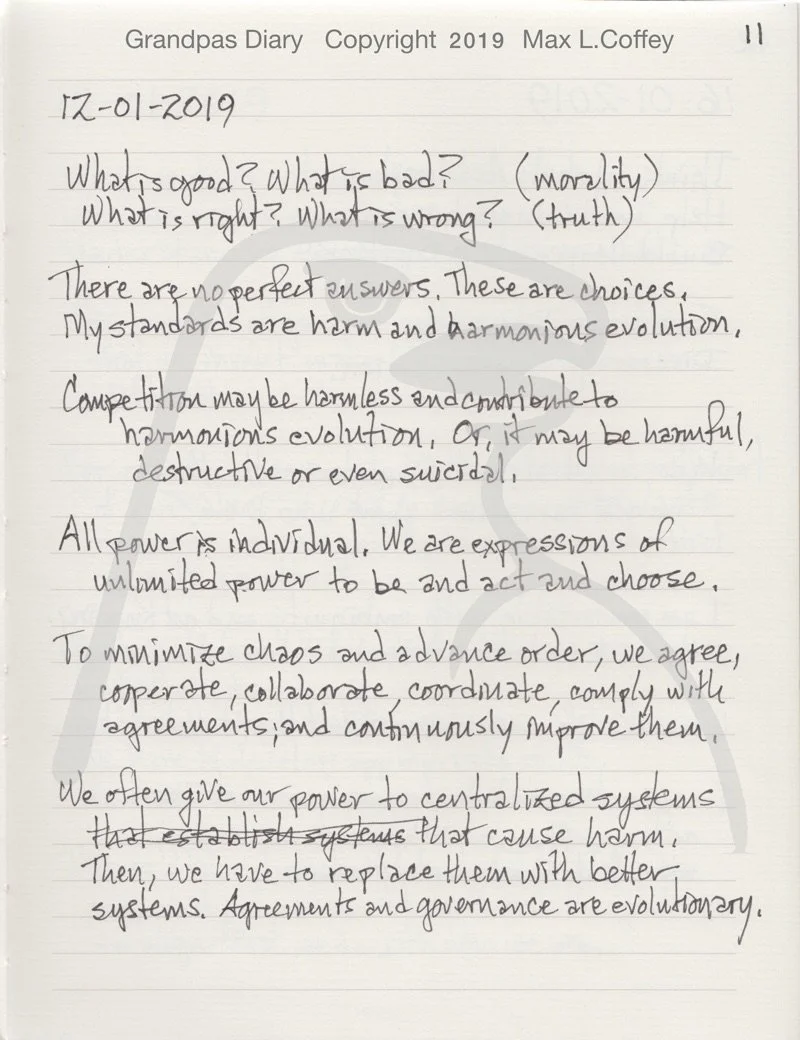 Grandpas Diary Copyright 2019 Max L.Coffey
11
12-01-2019
What is good? What is bad? (morality)
What is right? What is wrong? (truth)
There are no perfect answers. These are choices.
My standards are harm and harmonious evolution.
Competition may be harmless and contribute to
harmonious evolution. Or, it may be harmful,
destructive or even suicidal.
All power is individual. We are expressions of
unlimited power to be and act and choose.
To minimize chaos and advance order, we agree,
cooperate, collaborate, coordinate, comply with
agreements; and continuously improve them.
We often give our power to centralized systems
that establish systems that cause harm.
Then, we have to replace them with better
systems. Agreements and governance are evolutionary.